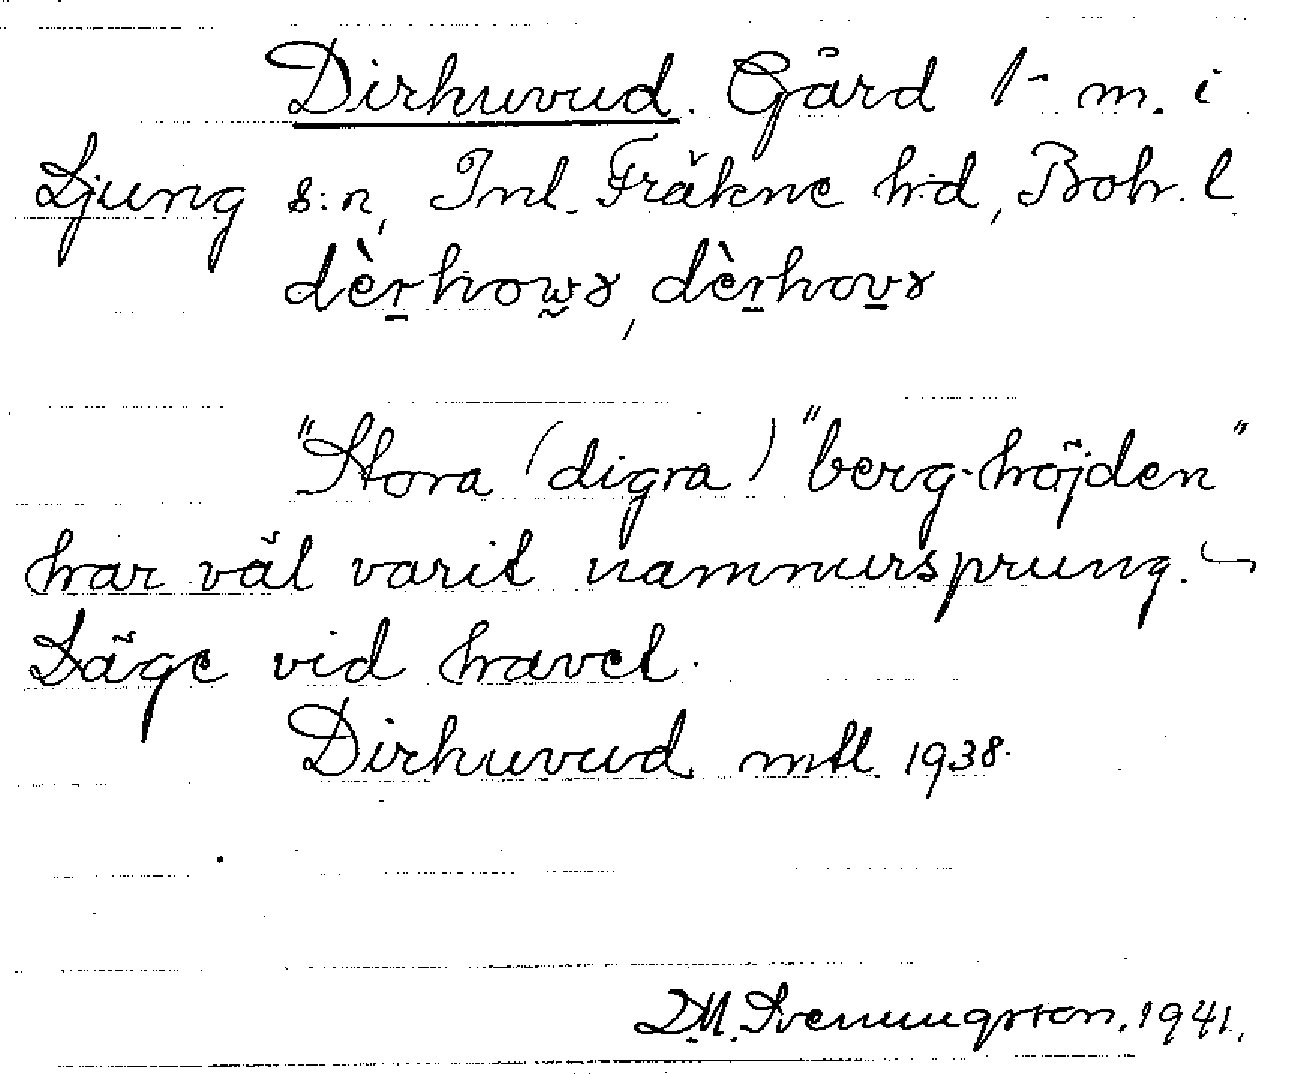 Dirhuvud. Gård 1 m. i
Ljung s:n, Inl. Fräkne h:d, Boh. l.
dèrhowɤ, dèrhovɤ
"Stora (digra) "berg-höjden"
har väl varit namnursprung.
Läge vid havet.
Dirhuvud mtl 1938.
D.M. Svenungsson. 1941.